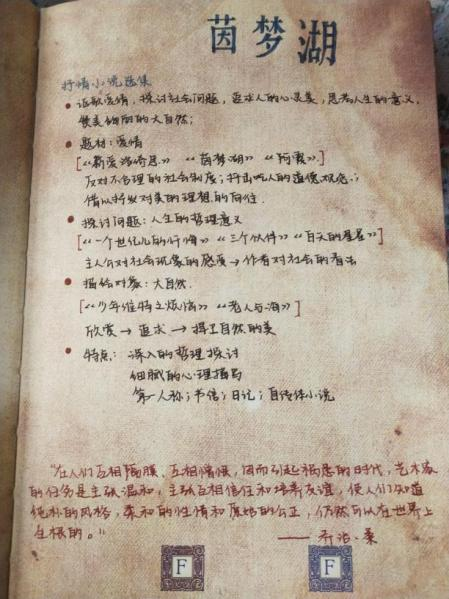 茵梦湖
抒情小说选集
• 讴歌爱情，探讨社会问题，追求人的心灵美，思考人生的意义，
赞美绚丽的大自然；
• 题材：爱情
[《新爱洛绮思》 《茵梦湖》 《阿霞》]
反对不合理的社会制度；抨击吃人的道德观念；
借以抒发对美的理想的向往
• 探讨问题：人生的哲理意义
[《一个世纪儿的忏悔》 《三个伙伴》 《白天的星星》]
主人公对社会现象的感受→作者对社会的看法
• 描绘对象：大自然.
[《少年维特之烦恼》 《老人与海》]
欣赏 → 追求 → 自然的美
• 特点： 深入的哲理探讨
细腻的心理描写
第一人称；书信；日记；自传体小说
"在人们互相隔膜、互相憎恨，因而引起祸患的时代，艺术家
的任务是主张温和，主张互相信任和培养友谊，使人们知道
纯朴的风格，柔和的性情和原始的公正，仍然可以在世界上
生根的。"
—— 乔治·桑
F F